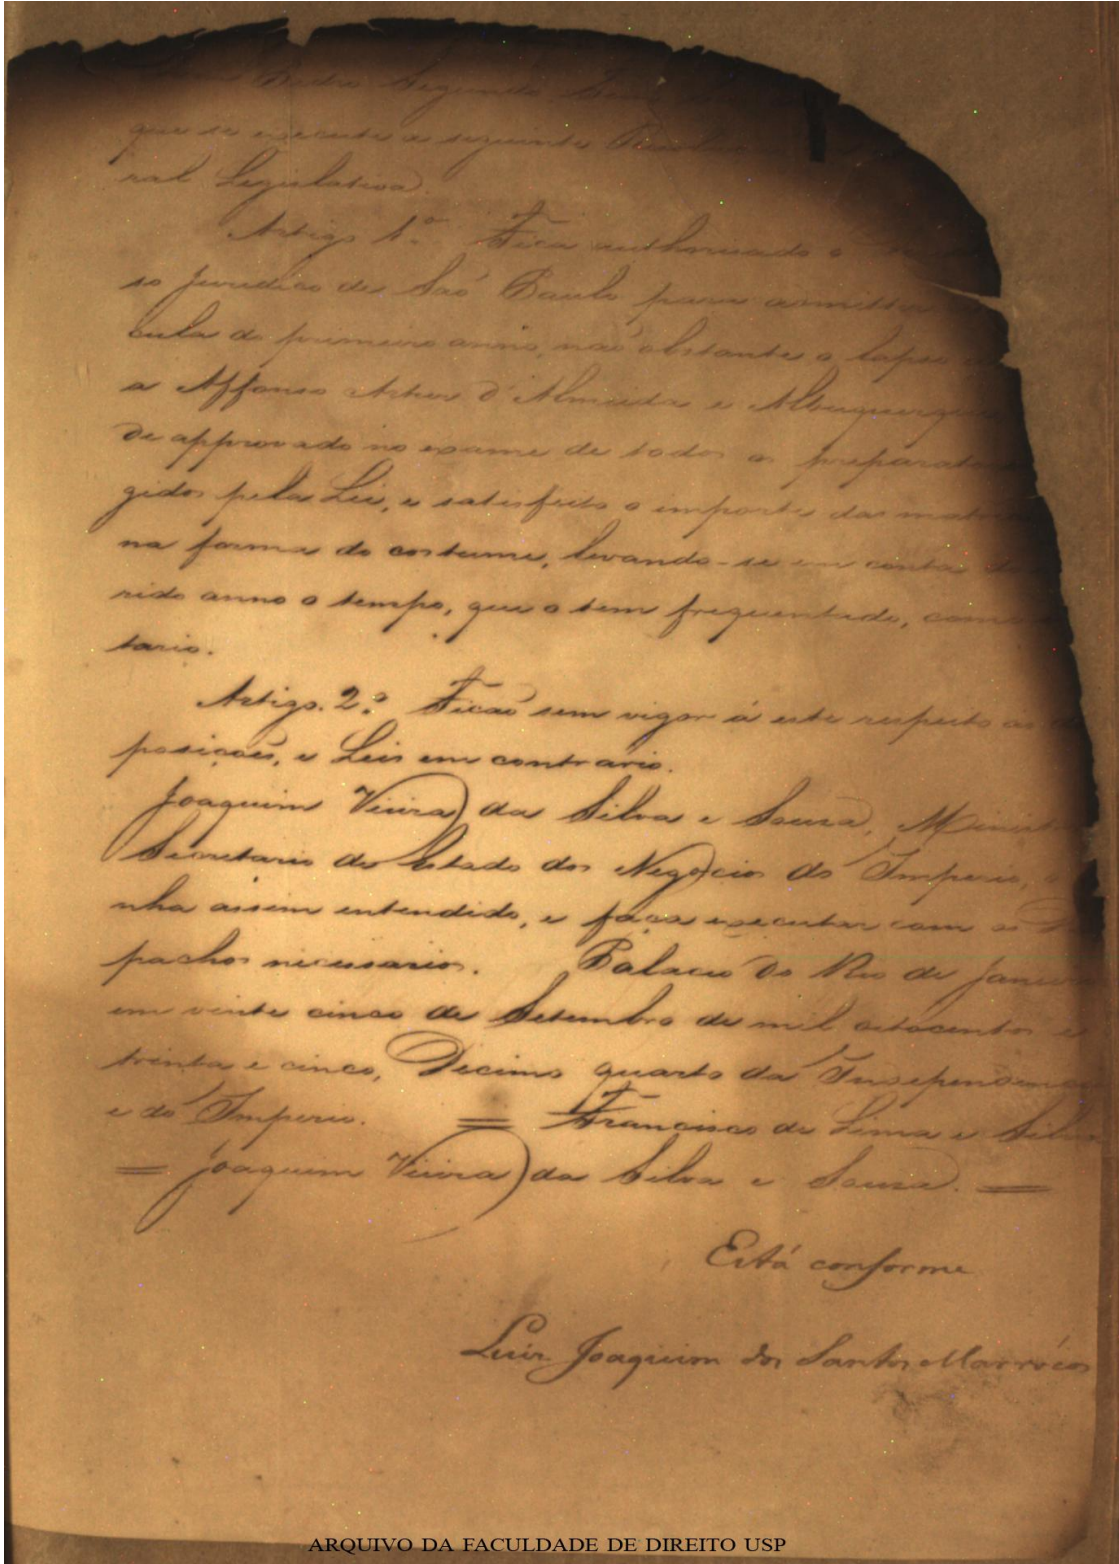 Pedro Segundo
que se execute a seguinte
ral Legislativa.
Artigo 1.º Fica authorisado o
so Juridico de Saõ Paulo para admittir
cula do primeiro anno, naõ obstante o lapso
a Affonso Artur d'Almeida e Albuquerque
de approvado no exame de todos os preparato
gidos pela Lei, e satisfeito o importe das matri
na forma do costume, levando-se em conta do
rido anno o tempo, que o tem frequentado, como
tario.
Artigo. 2.º Ficaõ sem vigor á este respeito as
posiçoẽs, e Leis em contrario.
Joaquim Vieira da Silva e Souza, Ministr
Secretario do Estado dos Negocios do Imperio,
nha assim entendido, e faça executar com os D
pachos necessarios. Palacio do Rio de Janeiro
em vinte cinco de Setembro de mil oitocentos e
trinta e cinco, Decimo quarto da Independencia
e do Imperio. = Francisco de Lima e Silva
= Joaquim Vieira da Silva e Souza. =
Está conforme
Luis Joaquim dos Santos Marrócos
ARQUIVO DA FACULDADE DE DIREITO USP